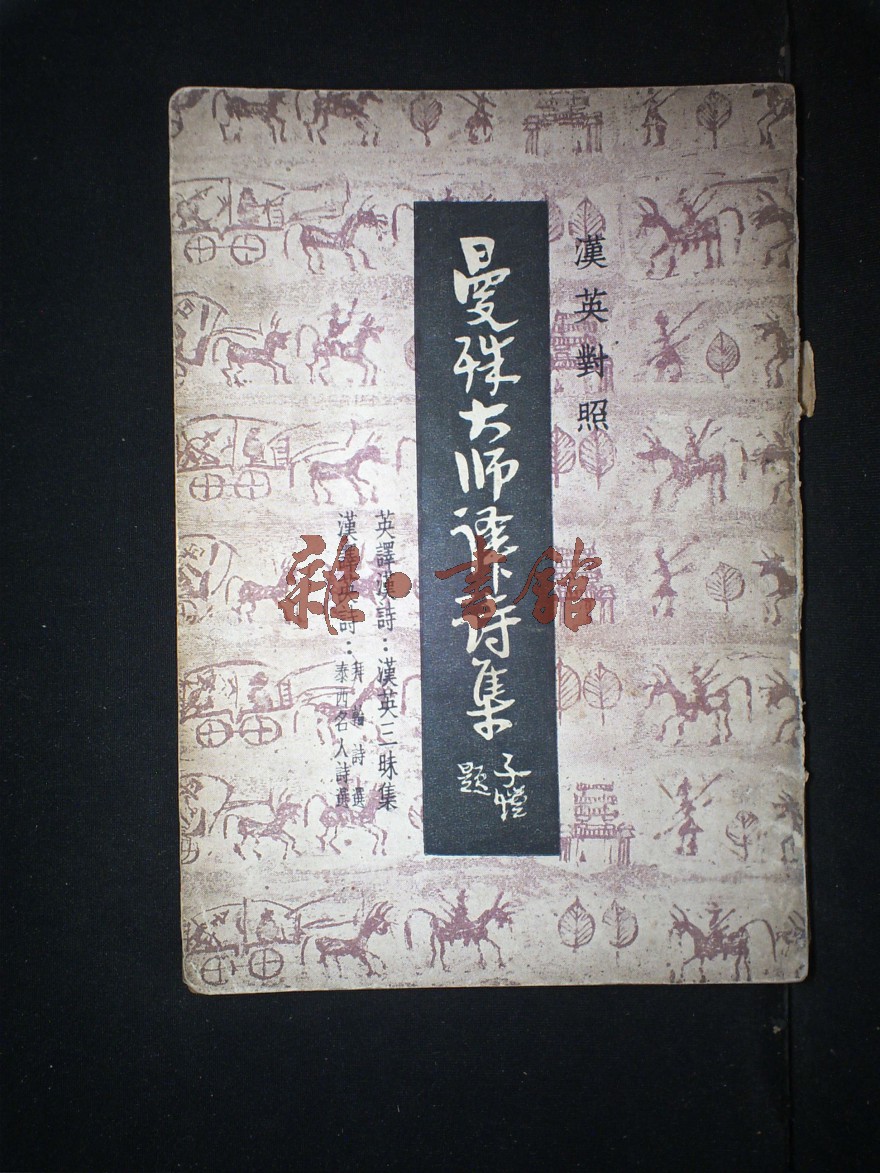 漢英對照
曼殊大师譯詩集
子愷
題
英譯漢詩：漢英三昧集
漢譯英詩：拜輪詩選
泰西名人詩選
雜·書館